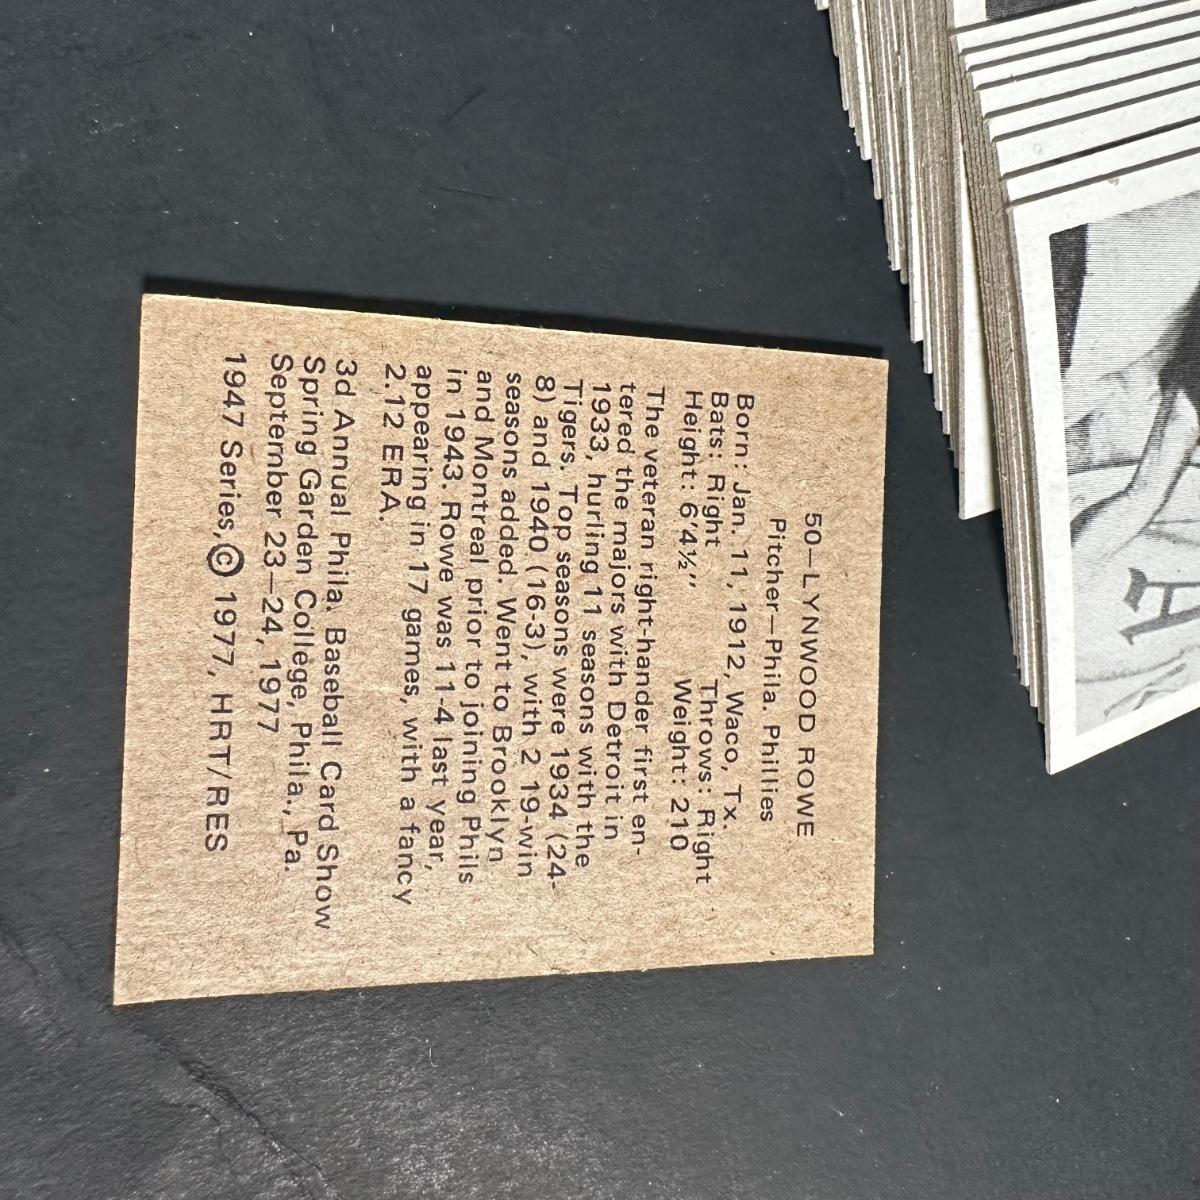 50—LYNWOOD ROWE
Pitcher—Phila. Phillies
Born: Jan. 11, 1912, Waco, Tx.
Bats: Right Throws: Right
Height: 6'4½'' Weight: 210
The veteran right-hander first en-
tered the majors with Detroit in
1933, hurling 11 seasons with the
Tigers. Top seasons were 1934 (24-
8) and 1940 (16-3), with 2 19-win
seasons added. Went to Brooklyn
and Montreal prior to joining Phils
in 1943. Rowe was 11-4 last year,
appearing in 17 games, with a fancy
2.12 ERA.
3d Annual Phila. Baseball Card Show
Spring Garden College, Phila., Pa.
September 23—24, 1977
1947 Series, © 1977, HRT/RES